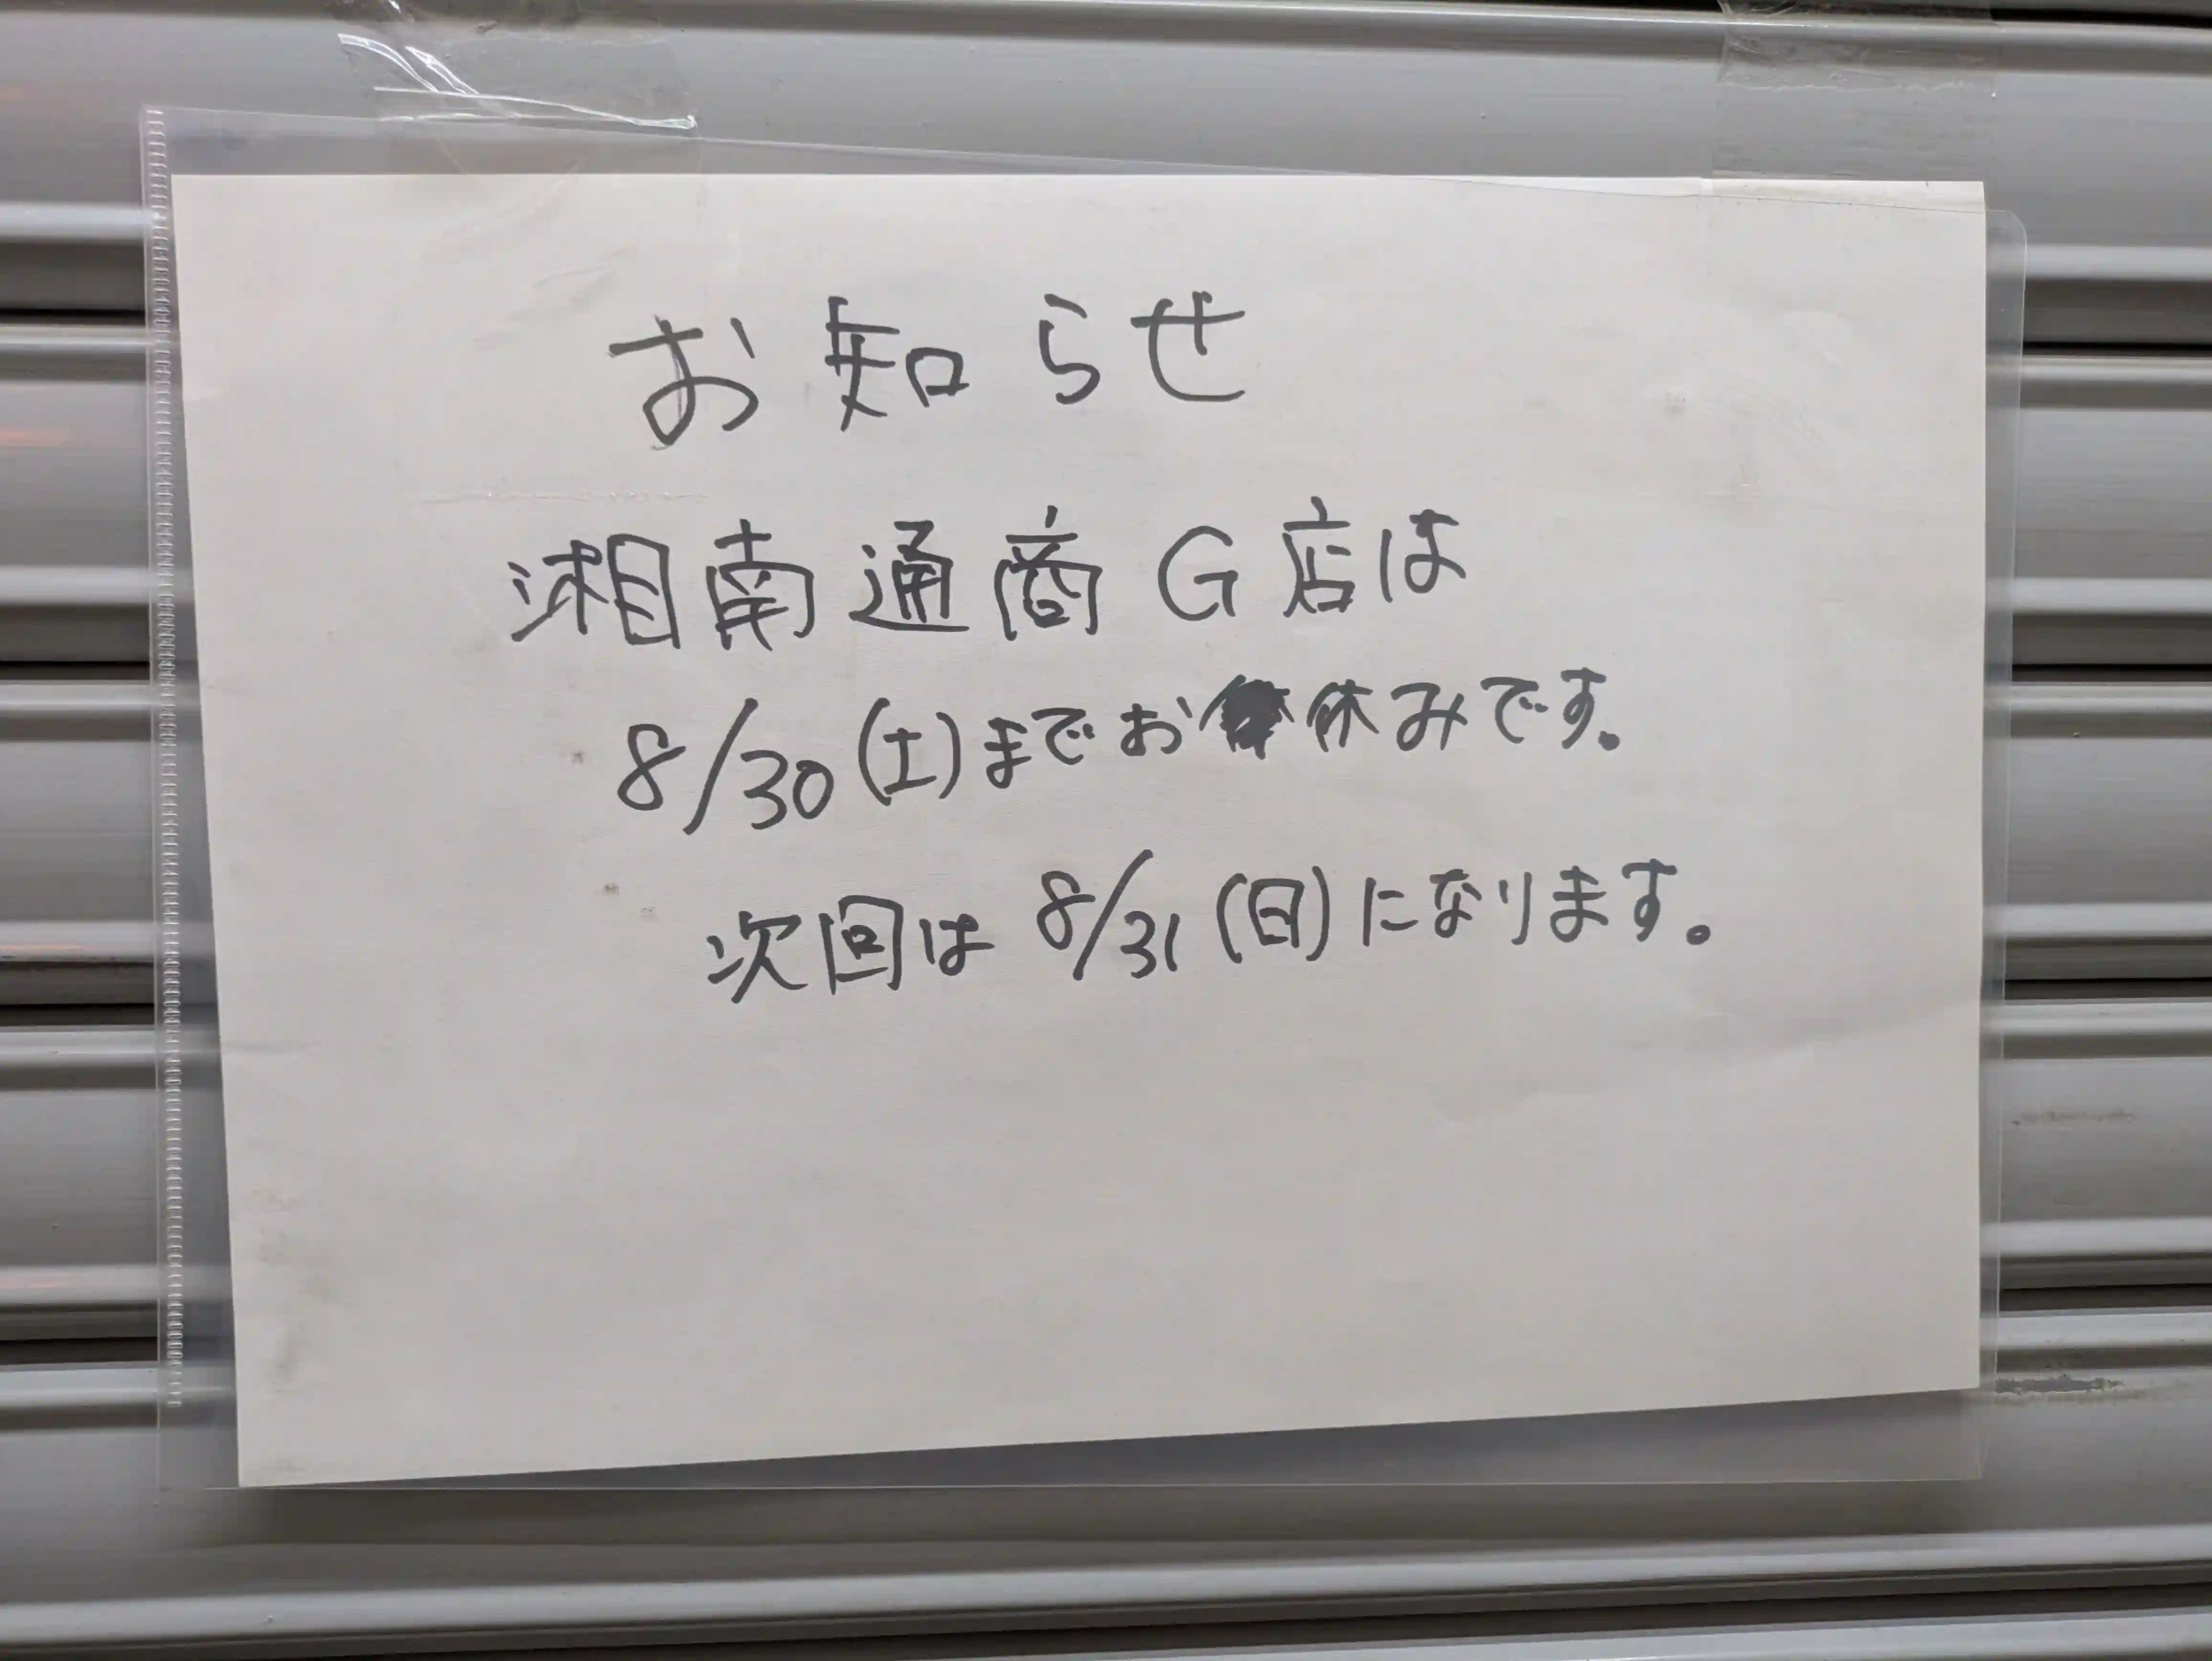 お知らせ
湘南通商G店は
8/30(土)までお休みです。
次回は8/31(日)になります。